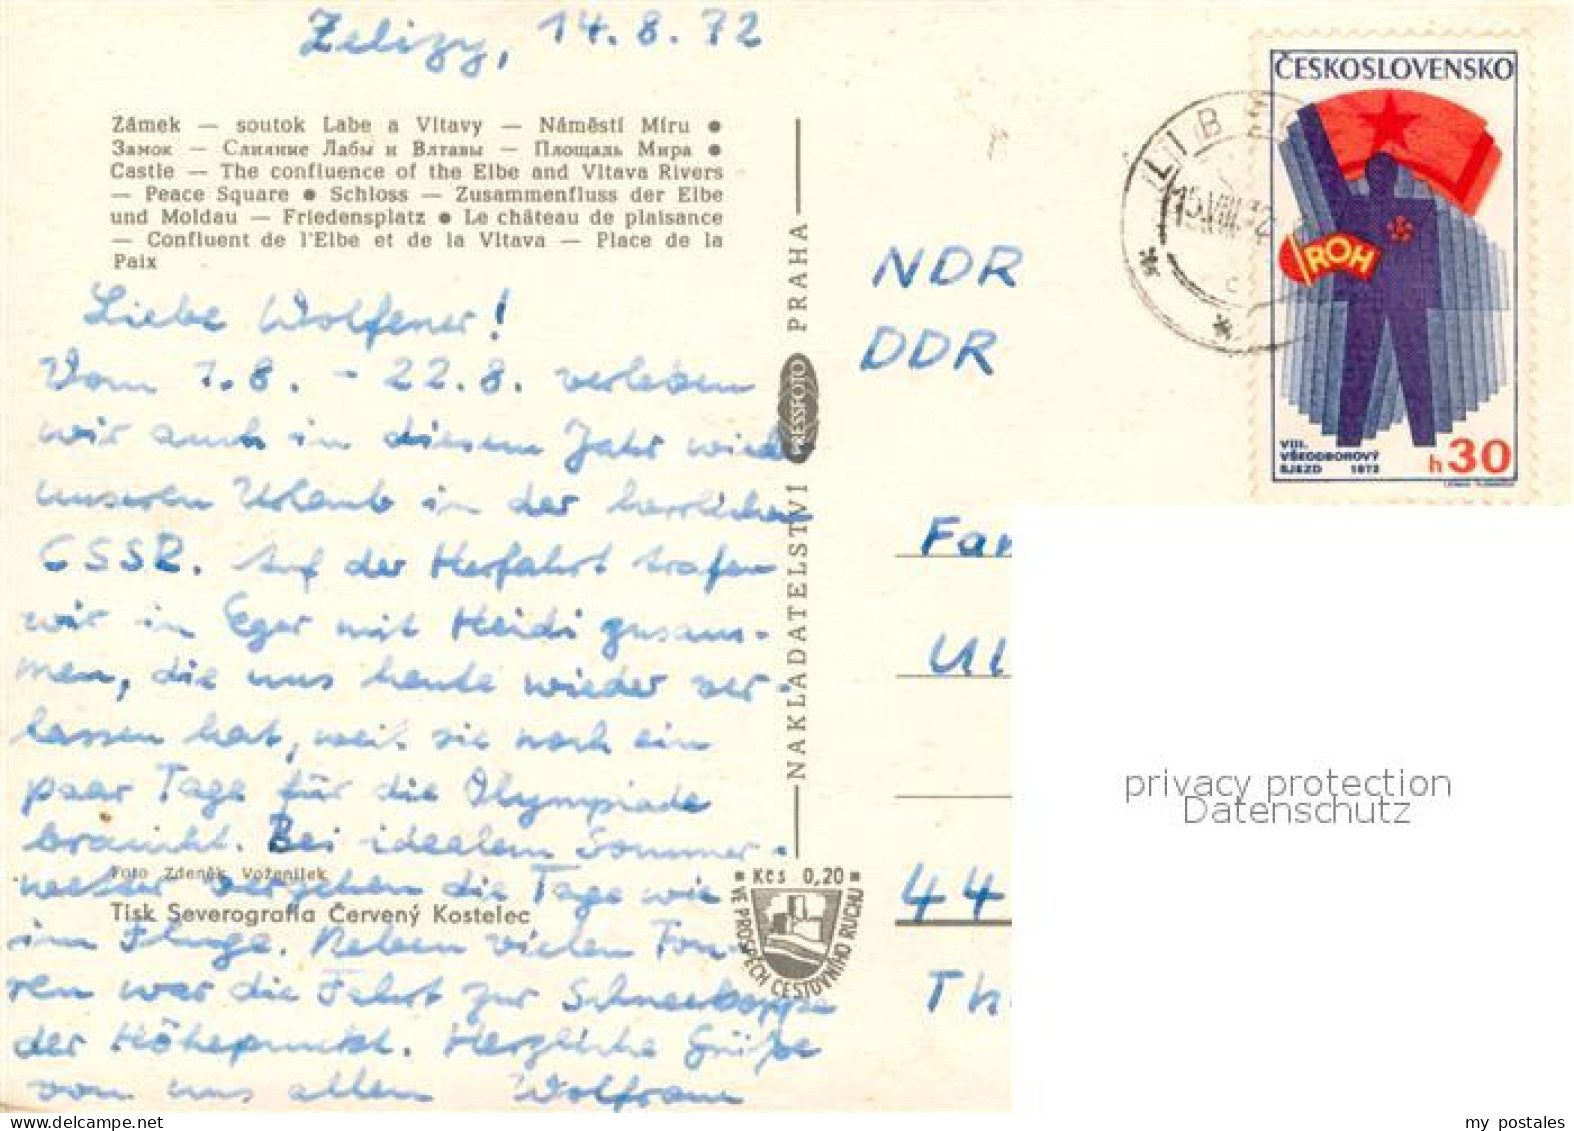 Zelizy, 14.8.72
Zámek — soutok Labe a Vltavy — Náměstí Míru ●
Замок — Слияние Лабы и Влтавы — Площадь Мира ●
Castle — The confluence of the Elbe and Vltava Rivers
— Peace Square ● Schloss — Zusammenfluss der Elbe
und Moldau — Friedensplatz ● Le château de plaisance
— Confluent de l'Elbe et de la Vltava — Place de la
Paix
Liebe Wolfener!
Vom 1.8. - 22.8. verleben
wir auch in diesem Jahr wied
unseren Urlaub in der herrlichen
CSSR. Auf der Herfahrt trafen
wir in Eger mit Heidi zusam-
men, die uns heute wieder ver-
lassen hat, weil sie noch ein
paar Tage für die Olympiade
braucht. Bei idealem Sommer-
wetter vergehen die Tage wie
im Fluge. Neben vielen Tou-
ren war die Fahrt zur Schneekoppe
der Höhepunkt. Herzliche Grüße
von uns allen Wolfram
Foto Zdeněk Voženílek
Tisk Severografia Červený Kostelec
NAKLADATELSTVÍ PRESSFOTO PRAHA
Kčs 0,20
VE PROSPĚCH CESTOVNÍHO RUCHU
ČESKOSLOVENSKO
ROH
VIII.
VŠEODBOROVÝ
SJEZD 1972
h30
LIB
15.VIII.72
NDR
DDR
Fam
Ul
44
Th
privacy protection
Datenschutz
my postales